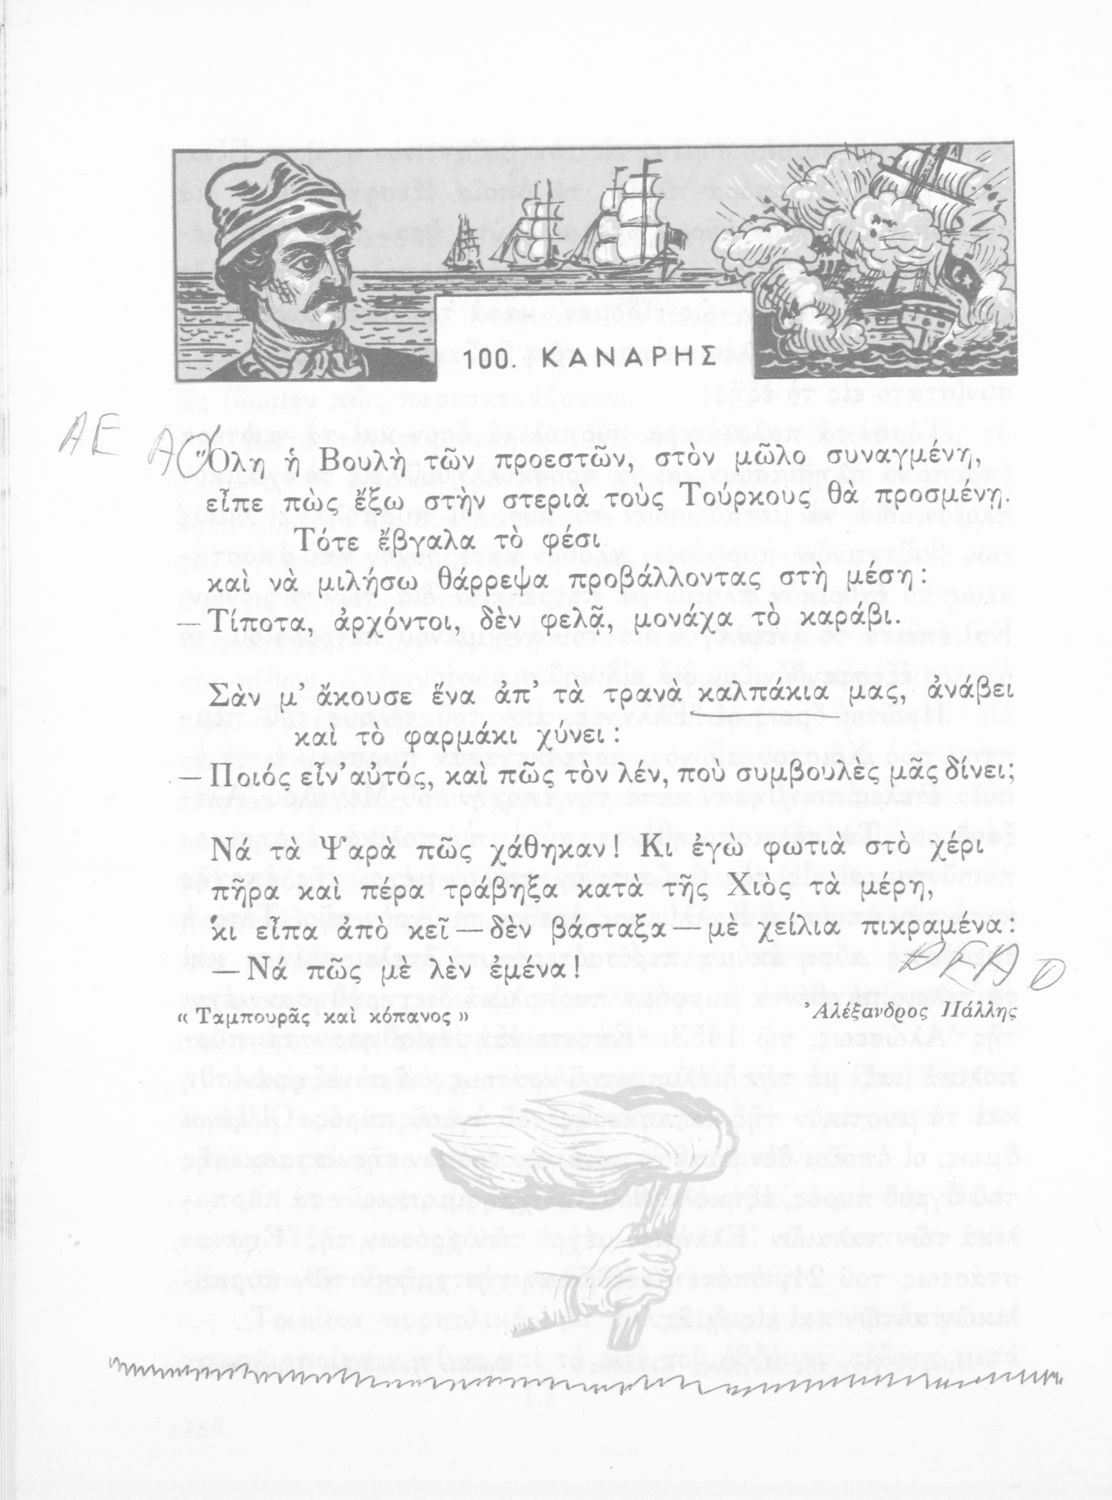 100. ΚΑΝΑΡΗΣ
ΑΕ
Ὅλη ἡ Βουλὴ τῶν προεστῶν, στὸν μῶλο συναγμένη,
εἶπε πὼς ἔξω στὴν στεριὰ τοὺς Τούρκους θὰ προσμένη.
Τότε ἔβγαλα τὸ φέσι
καὶ νὰ μιλήσω θάρρεψα προβάλλοντας στὴ μέση:
— Τίποτα, ἀρχόντοι, δὲν φελᾶ, μονάχα τὸ καράβι.
Σὰν μ' ἄκουσε ἕνα ἀπ' τὰ τρανὰ καλπάκια μας, ἀνάβει
καὶ τὸ φαρμάκι χύνει:
— Ποιός εἶν' αὐτός, καὶ πῶς τὸν λέν, ποὺ συμβουλὲς μᾶς δίνει;
Νά τὰ Ψαρὰ πῶς χάθηκαν! Κι ἐγὼ φωτιὰ στὸ χέρι
πῆρα καὶ πέρα τράβηξα κατὰ τῆς Χιὸς τὰ μέρη,
κι εἶπα ἀπὸ κεῖ — δὲν βάσταξα — μὲ χείλια πικραμένα:
— Νά πῶς μὲ λὲν ἐμένα!
« Ταμπουρᾶς καὶ κόπανος »
Ἀλέξανδρος Πάλλης